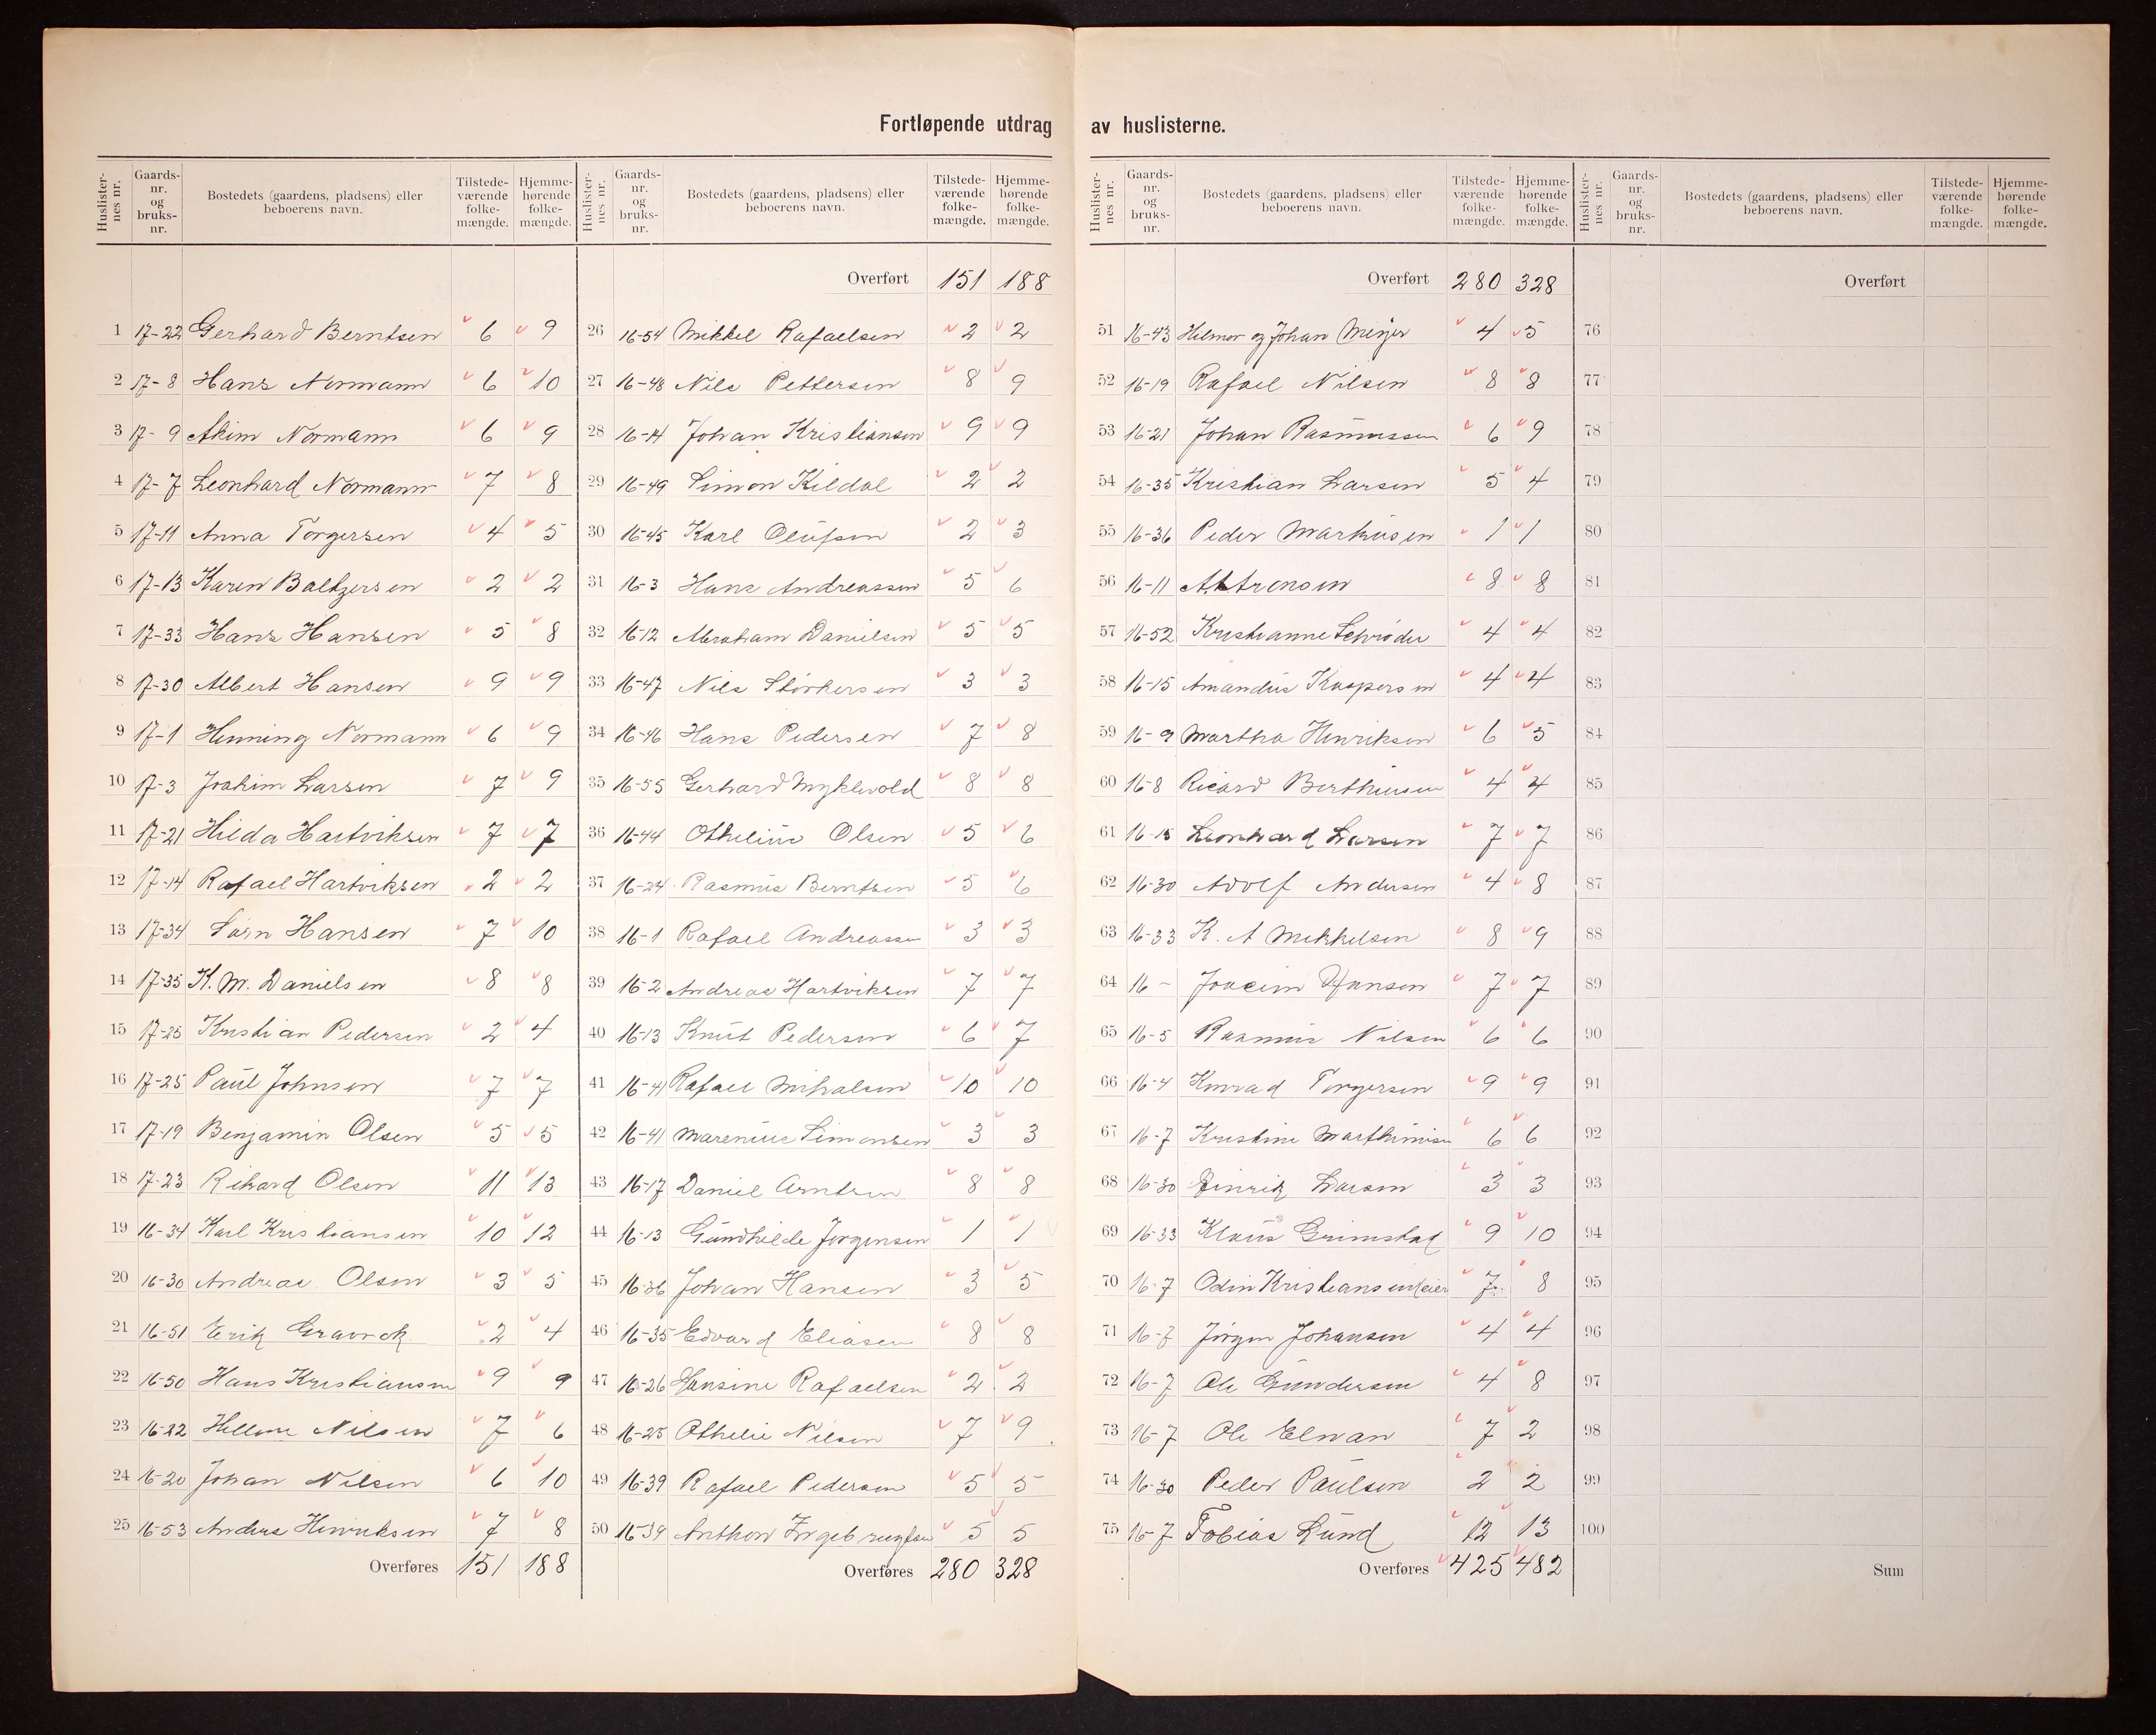 Fortløpende utdrag av huslisterne.
Huslisternes nr. Gaards-nr. og bruks-nr. Bostedets (gaardens, pladsens) eller beboerens navn. Tilstede-værende folke-mængde. Hjemme-hørende folke-mængde.
1 17-22 Gerhard Berntsen 6 9
2 17-8 Hans Normann 6 10
3 17-9 Akim Normann 6 9
4 17-7 Leonhard Normann 7 8
5 17-11 Anna Torgersen 4 5
6 17-13 Karen Baltzersen 2 2
7 17-33 Hans Hansen 5 8
8 17-30 Albert Hansen 9 9
9 17-1 Henning Normann 6 9
10 17-3 Joakim Larsen 7 9
11 17-21 Hilda Hartviksen 7 7
12 17-14 Rafael Hartviksen 2 2
13 17-34 Sørn Hansen 7 10
14 17-35 K. M. Danielsen 8 8
15 17-25 Kristian Pedersen 2 4
16 17-25 Paul Johnsen 7 7
17 17-19 Benjamin Olsen 5 5
18 17-23 Rikard Olsen 11 13
19 16-34 Karl Kristiansen 10 12
20 16-30 Andreas Olsen 3 5
21 16-51 Erik 2 4
22 16-50 Hans Kristiansen 9 9
23 16-22 Nilsen 7 6
24 16-20 Johan Nilsen 6 10
25 16-53 Anders Henriksen 7 8
Overføres 151 188
Huslisternes nr. Gaards-nr. og bruks-nr. Bostedets (gaardens, pladsens) eller beboerens navn. Tilstede-værende folke-mængde. Hjemme-hørende folke-mængde.
Overført 151 188
26 16-54 Mikkel Rafaelsen 2 2
27 16-48 Nils Pettersen 8 9
28 16-14 Johan Kristiansen 9 9
29 16-49 Simon Kildal 2 2
30 16-45 Karl Olufsen 2 3
31 16-3 Hans Andreassen 5 6
32 16-12 Abraham Danielsen 5 5
33 16-47 Nils Størkersen 3 3
34 16-46 Hans Pedersen 7 8
35 16-55 Gerhard Myklevold 8 8
36 16-44 Othelius Olsen 5 6
37 16-24 Rasmus Berntsen 5 6
38 16-1 Rafael Andreassen 3 3
39 16-2 Andreas Hartviksen 7 7
40 16-13 Knut Pedersen 6 7
41 16-41 Rafael Mikalsen 10 10
42 16-41 Marenius Simonsen 3 3
43 16-17 Daniel Arntsen 8 8
44 16-13 Gundhilde Jørgensen 1 1
45 16-36 Johan Hansen 3 5
46 16-35 Edvard Eliasen 8 8
47 16-26 Hansine Rafaelsen 2 2
48 16-25 Othelie Nilsen 7 9
49 16-39 Rafael Pedersen 5 5
50 16-39 Anthon Ingebrigtsen 5 5
Overføres 280 328
Huslisternes nr. Gaards-nr. og bruks-nr. Bostedets (gaardens, pladsens) eller beboerens navn. Tilstede-værende folke-mængde. Hjemme-hørende folke-mængde.
Overført 280 328
51 16-43 Hilmor og Johan Meyer 4 5
52 16-19 Rafael Nilsen 8 8
53 16-21 Johan Rasmussen 6 9
54 16-35 Kristian Larsen 5 4
55 16-36 Peder Markusen 1 1
56 16-11 8 8
57 16-52 Kristianne Schrøder 4 4
58 16-15 Amandus Kaspersen 4 4
59 16-9 Martha Henriksen 6 5
60 16-8 Ricard Berthinsen 4 4
61 16-15 Leonhard Larsen 7 7
62 16-30 Adolf Andersen 4 8
63 16-33 K. A Mikkelsen 8 9
64 16- Joacim Hansen 7 7
65 16-5 Rasmus Nilsen 6 6
66 16-4 Konrad Torgersen 9 9
67 16-7 Kristine Marthinisen 6 6
68 16-30 Hinrik Larsen 3 3
69 16-33 Klaus Grimstad 9 10
70 16-7 Odin Kristiansen 7 8
71 16-7 Jørgen Johansen 4 4
72 16-7 Ole Gundersen 4 8
73 16-7 Ole Elvan 7 2
74 16-30 Peder Paulsen 2 2
75 16-7 Tobias Lund 12 13
Overføres 425 482
Huslisternes nr. Gaards-nr. og bruks-nr. Bostedets (gaardens, pladsens) eller beboerens navn. Tilstede-værende folke-mængde. Hjemme-hørende folke-mængde.
Overført
76
77
78
79
80
81
82
83
84
85
86
87
88
89
90
91
92
93
94
95
96
97
98
99
100
Sum